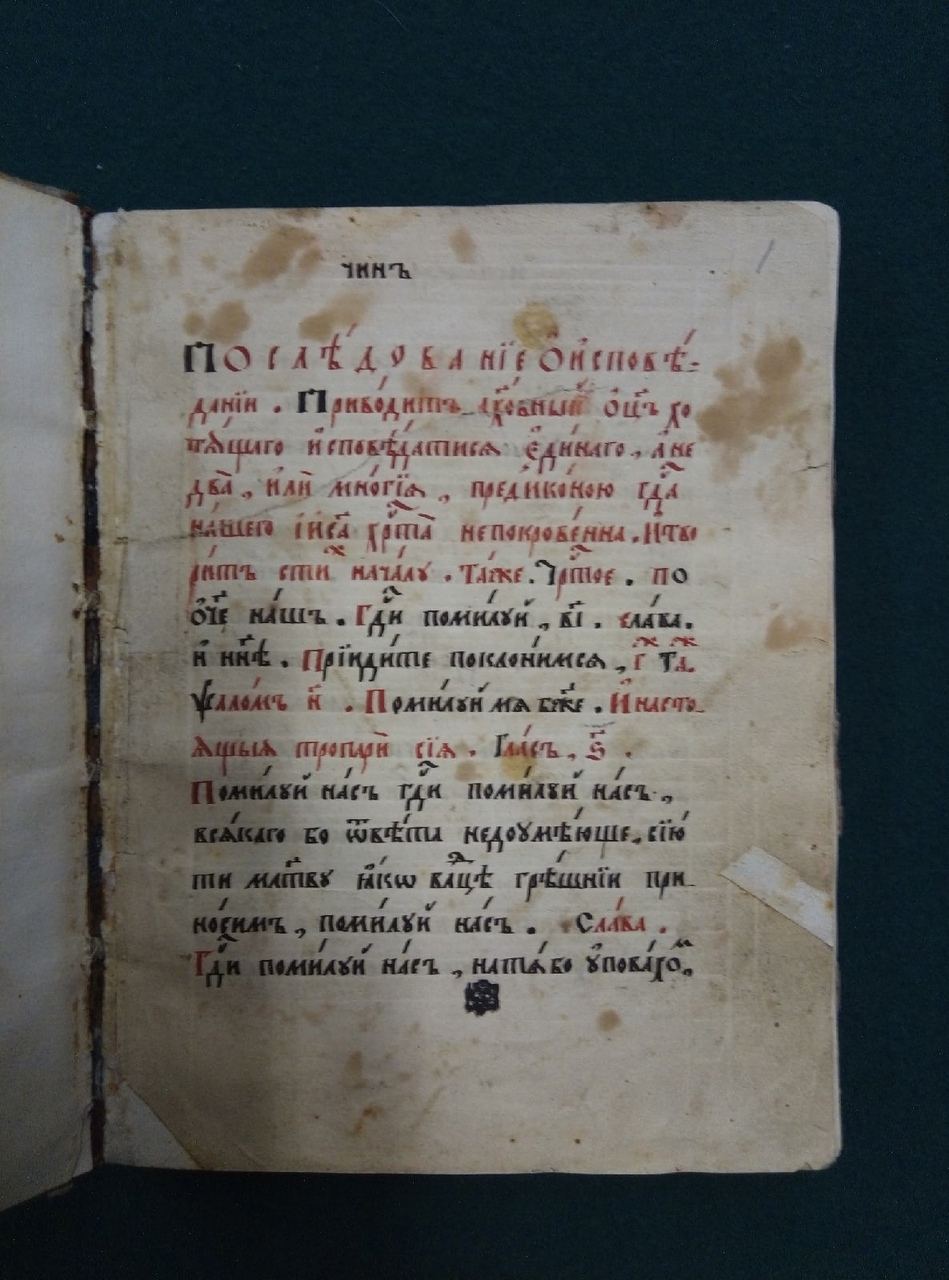 чинъ
1
Послѣ́дованїе ѻ҆и҆сповѣ́-
данїи . Приво́дитъ дх҃о́вный ѻ҆ц҃ъ хо
тѧ́щаго и҆сповѣ́датисѧ є҆ди́наго , а҆ не
два̀ , и҆лѝ мно́гїѧ , пред̾ико́ною гдⷭ҇а
на́шего і҆и҃са хрⷭ҇та̀ непокрове́нна . И҆тво
ри́тъ стⷯи нача́лу . Та́же . Трⷭ҇тое . по
ѻ҆́ч҃е на́шъ . Гдⷭ҇и поми́луй , в҃і . сла́ва .
и҆ нн҃ѣ . Прїиди́те поклони́мсѧ , г҃ⷤ Таⷤ .
Ѱало́мъ н҃ . Поми́луй мѧ бж҃е . И҆насто-
ѧ́щыѧ тропарѝ сїѧ̀ . Гла́съ , ѕ҃ .
Поми́луй на́съ гдⷭ҇и поми́луй на́съ ,
всѧ́каго бо ѿвѣ́та недоумѣ́юще , сїю̀
ти мл҃тву ꙗ҆́кѡ влⷣцѣ грѣ́шнїи при-
но́симъ , поми́луй на́съ . Сла́ва .
Гдⷭ҇и поми́луй на́съ , на тѧ́ бо ᲂу҆пова́хоⷨ ,